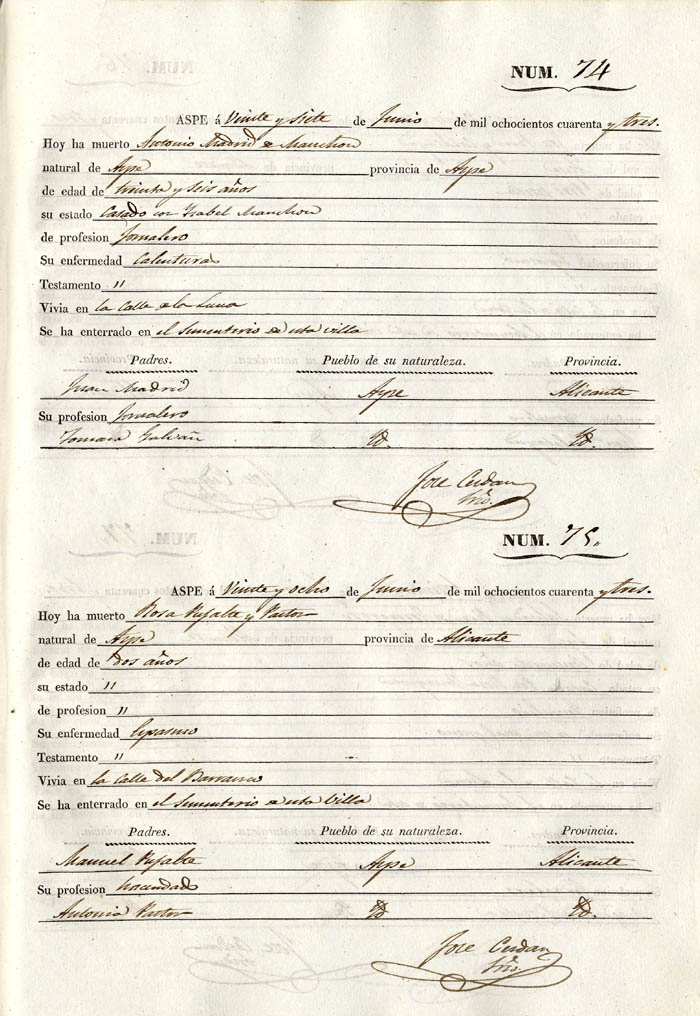 NUM. 74
ASPE á Veinte y Siete de Junio de mil ochocientos cuarenta y tres.
Hoy ha muerto Antonio Madrid de Manchon
natural de Aspe provincia de Aspe
de edad de treinta y seis años
su estado Casado con Ysabel Manchon
de profesion Jornalero
Su enfermedad Calentura
Testamento "
Vivia en la Calle de la Luna
Se ha enterrado en el Sementerio de esta villa
Padres. Pueblo de su naturaleza. Provincia.
Juan Madrid Aspe Alicante
Su profesion Jornalero
Tomasa Galvañ Yd. Yd.
Jose Cerdan
Srio.
NUM. 75.
ASPE á Veinte y ocho de Junio de mil ochocientos cuarenta y tres.
Hoy ha muerto Rosa Pujalte y Pastor
natural de Aspe provincia de Alicante
de edad de dos años
su estado "
de profesion "
Su enfermedad Espasmo
Testamento "
Vivia en la Calle del Barranco
Se ha enterrado en el Sementerio de esta Villa
Padres. Pueblo de su naturaleza. Provincia.
Manuel Pujalte Aspe Alicante
Su profesion hacendado
Antonia Pastor Yd Yd.
Jose Cerdan
Srio.